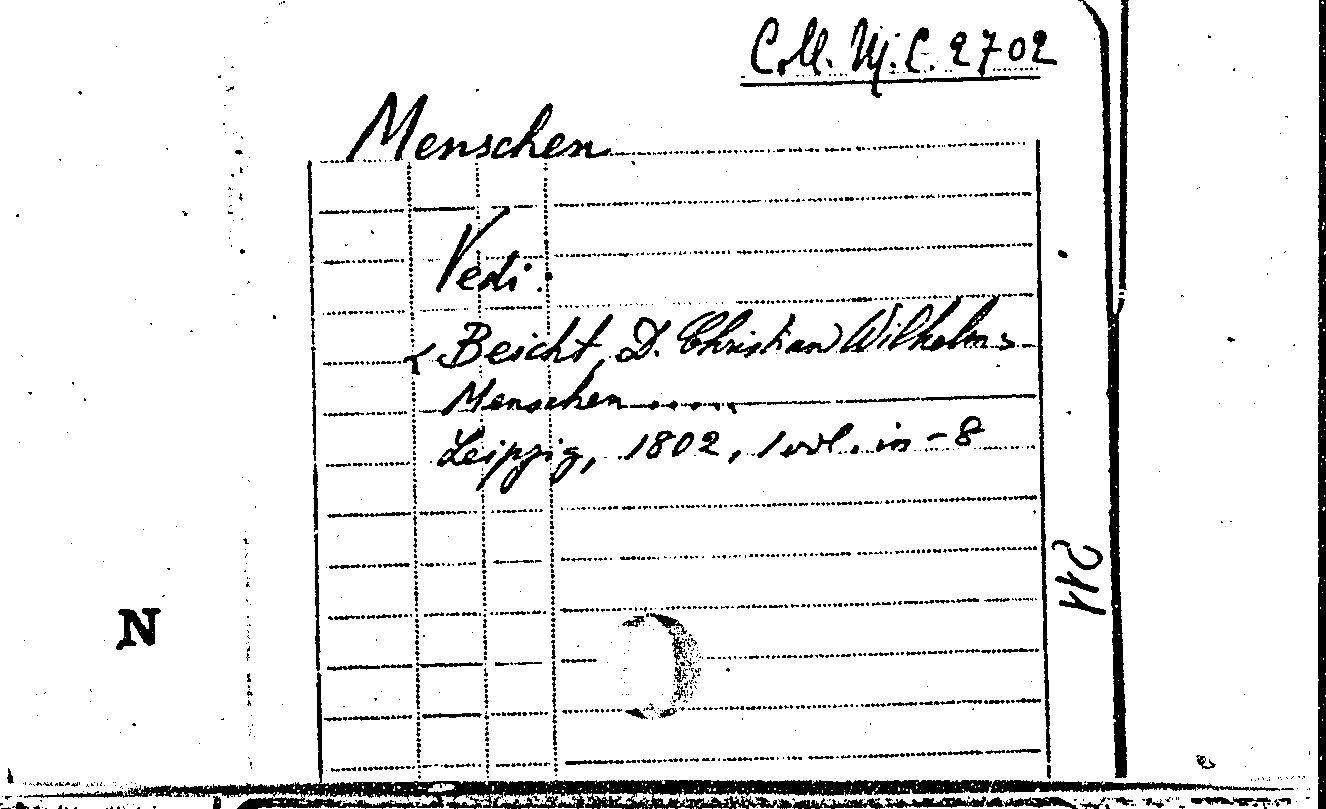 Coll. M.C. 2702
Menschen
Vedi:
< Beicht, D. Christian Wilhelms
Menschen......
Leipzig, 1802, 1 vol. in-8
211
N